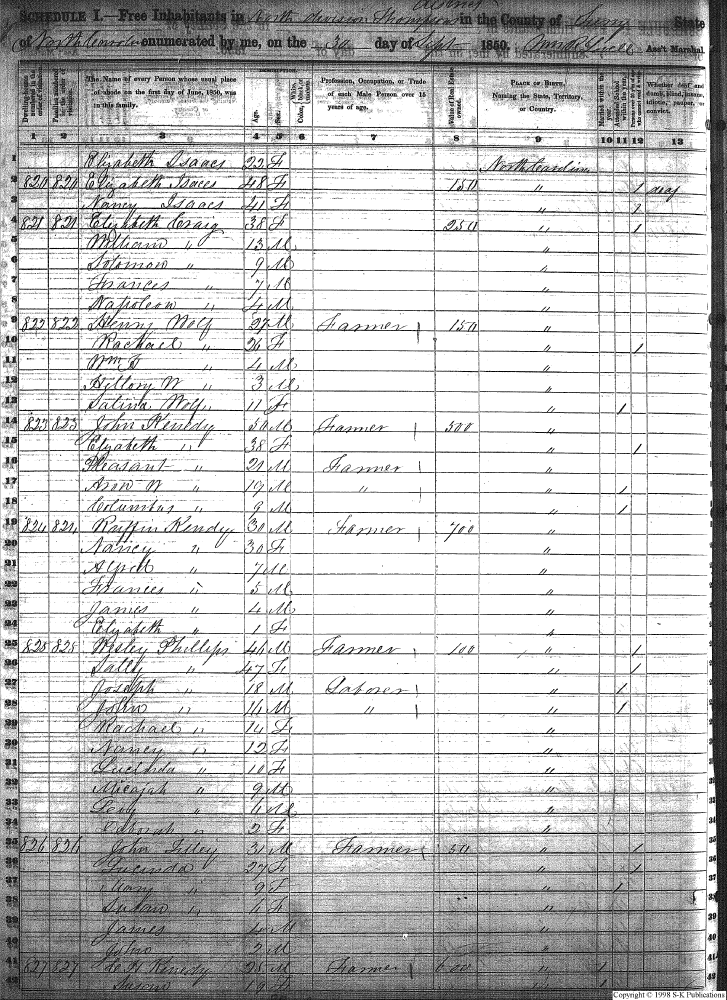 SCHEDULE I.—Free Inhabitants in North division Thompson in the County of Surry State
of North Carolina enumerated by me, on the 30 day of Sept 1850. Ass't Marshal
The Name of every Person whose usual place of abode on the first day of June, 1850, was in this family.
Age.
Sex.
Profession, Occupation, or Trade of each Male Person over 15 years of age.
Value of Real Estate owned.
PLACE OF BIRTH, Naming the State, Territory, or Country.
Whether deaf and dumb, blind, insane, idiotic, pauper, or convict.
1 2 3 4 5 6 7 8 9 10 11 12 13
1 Elizabeth Isaacs 22 F North Carolina
2 820 820 Elizabeth Isaacs 48 F 150 " 1 deaf
3 Nancy Isaacs 41 F " 1
4 821 821 Elizabeth Craig 38 F 250 " 1
5 William " 13 M "
6 Solomon " 9 M "
7 Frances " 7 M "
8 Napoleon " 4 M "
9 822 822 Henry Wolf 27 M Farmer 150 "
10 Rachael " 26 F " 1
11 Wm F " 4 M "
12 Hillory W " 3 M "
13 Salina Wolf 11 F " 1
14 823 823 John Kenedy 50 M Farmer 500 "
15 Elizabeth " 38 F " 1
16 Pleasant " 21 M Farmer "
17 W " 19 M " " 1
18 Columbus " 9 M " 1
19 824 824 Ruffin Kendy 30 M Farmer 700 "
20 Nancy " 30 F "
21 Alfred " 7 M "
22 Frances " 5 M "
23 James " 4 M "
24 Elizabeth " 1 F "
25 825 825 Wesley Phillips 46 M Farmer 100 " 1
26 Sally " 47 F " 1
27 Joseph " 18 M Laborer " 1
28 John " 16 M " " 1
29 Rachael " 14 F "
30 Nancy " 12 F "
31 Lucinda " 10 F "
32 Micajah " 9 M "
33 Levy " 6 M "
34 Deborah " 2 F "
35 826 826 John Tilley 31 M Farmer 50 " 1
36 Lucinda " 27 F " 1
37 Mary " 9 F " 1
38 Susan " 6 F "
39 James " 4 M "
40 John " 2 M "
41 827 827 Kenedy 25 M Farmer 600 " 1
42 Susan " 19 F " 1
Copyright © 1998 S-K Publications